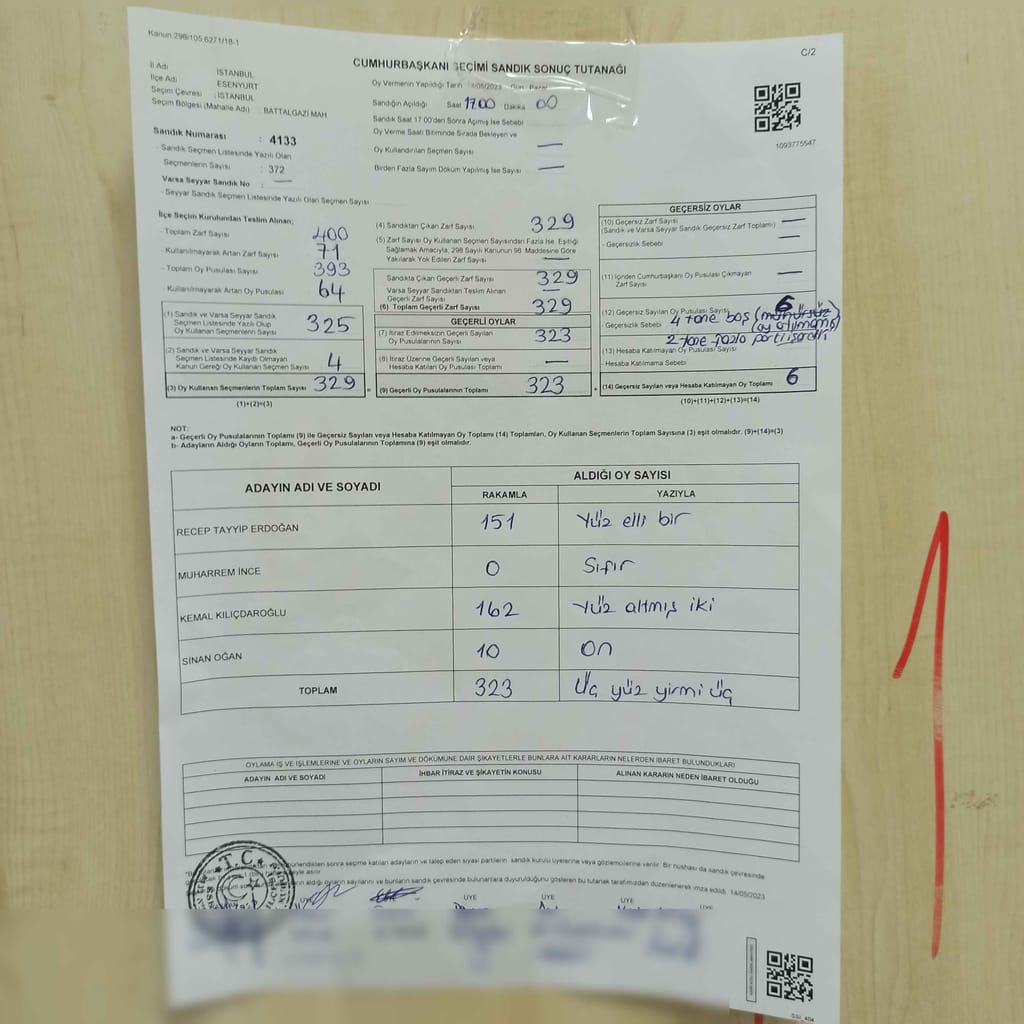 Kanun.298/105,6271/18-1
C/2
CUMHURBAŞKANI SEÇİMİ SANDIK SONUÇ TUTANAĞI
İl Adı : İSTANBUL
İlçe Adı : ESENYURT
Seçim Çevresi : İSTANBUL
Seçim Bölgesi (Mahalle Adı) : BATTALGAZİ MAH
Oy Vermenin Yapıldığı Tarih /05/2023 Gün Pazar
Sandığın Açıldığı Saat 17.00 Dakika 00
Sandık Saat 17.00'den Sonra Açılmış İse Sebebi
Oy Verme Saati Bitiminde Sırada Bekleyen ve
Oy Kullandırılan Seçmen Sayısı —
Birden Fazla Sayım Döküm Yapılmış İse Sayısı —
1093775547
Sandık Numarası : 4133
- Sandık Seçmen Listesinde Yazılı Olan
Seçmenlerin Sayısı : 372
Varsa Seyyar Sandık No : —
- Seyyar Sandık Seçmen Listesinde Yazılı Olan Seçmen Sayısı
İlçe Seçim Kurulundan Teslim Alınan;
- Toplam Zarf Sayısı 400
- Kullanılmayarak Artan Zarf Sayısı 71
- Toplam Oy Pusulası Sayısı 393
- Kullanılmayarak Artan Oy Pusulası 64
(1) Sandık ve Varsa Seyyar Sandık
Seçmen Listesinde Yazılı Olup
Oy Kullanan Seçmenlerin Sayısı 325
(2) Sandık ve Varsa Seyyar Sandık
Seçmen Listesinde Kayıtlı Olmayan
Kanun Gereği Oy Kullanan Seçmen Sayısı 4
(3) Oy Kullanan Seçmenlerin Toplam Sayısı 329
(1)+(2)=(3)
(4) Sandıktan Çıkan Zarf Sayısı 329
(5) Zarf Sayısı Oy Kullanan Seçmen Sayısından Fazla İse, Eşitliği
Sağlamak Amacıyla, 298 Sayılı Kanunun 98. Maddesine Göre
Yakılarak Yok Edilen Zarf Sayısı —
Sandıkta Çıkan Geçerli Zarf Sayısı 329
Varsa Seyyar Sandıktan Teslim Alınan
Geçerli Zarf Sayısı —
(6) Toplam Geçerli Zarf Sayısı 329
GEÇERLİ OYLAR
(7) İtiraz Edilmeksizin Geçerli Sayılan
Oy Pusulalarının Sayısı 323
(8) İtiraz Üzerine Geçerli Sayılan veya
Hesaba Katılan Oy Pusulası Toplamı —
(9) Geçerli Oy Pusulalarının Toplamı 323
GEÇERSİZ OYLAR
(10) Geçersiz Zarf Sayısı —
(Sandık ve Varsa Seyyar Sandık Geçersiz Zarf Toplamı)
- Geçersizlik Sebebi —
(11) İçinden Cumhurbaşkanı Oy Pusulası Çıkmayan
Zarf Sayısı —
(12) Geçersiz Sayılan Oy Pusulası Sayısı 6
- Geçersizlik Sebebi 4 tane boş (mühürsüz)
(oy atılmamış)
2 tane fazla parti işaretli
(13) Hesaba Katılmayan Oy Pusulası Sayısı
- Hesaba Katılmama Sebebi
(14) Geçersiz Sayılan veya Hesaba Katılmayan Oy Toplamı 6
(10)+(11)+(12)+(13)=(14)
NOT:
a- Geçerli Oy Pusulalarının Toplamı (9) ile Geçersiz Sayılan veya Hesaba Katılmayan Oy Toplamı (14) Toplamları, Oy Kullanan Seçmenlerin Toplam Sayısına (3) eşit olmalıdır. (9)+(14)=(3)
b- Adayların Aldığı Oyların Toplamı, Geçerli Oy Pusulalarının Toplamına (9) eşit olmalıdır.
ADAYIN ADI VE SOYADI
ALDIĞI OY SAYISI
RAKAMLA YAZIYLA
RECEP TAYYİP ERDOĞAN 151 Yüz elli bir
MUHARREM İNCE 0 Sıfır
KEMAL KILIÇDAROĞLU 162 Yüz altmış iki
SİNAN OĞAN 10 On
TOPLAM 323 Üç yüz yirmi üç
OYLAMA İŞ VE İŞLEMLERİNE VE OYLARIN SAYIM VE DÖKÜMÜNE DAİR ŞİKAYETLERLE BUNLARA AİT KARARLARIN NELERDEN İBARET BULUNDUKLARI
ADAYIN ADI VE SOYADI İHBAR İTİRAZ VE ŞİKAYETİN KONUSU ALINAN KARARIN NEDEN İBARET OLDUĞU
sonra seçime katılan adayların ve talep eden siyasi partilerin sandık kurulu üyelerine veya gözlemcilerine verilir. Bir nüshası da sandık çevresinde
asılır
aldığı oyların sayılarını ve bunların sandık çevresinde bulunanlara duyurulduğunu gösteren bu tutanak tarafımızdan düzenlenerek imza edildi. 14/05/2023
T.C.
ÜYE ÜYE ÜYE ÜYE
1